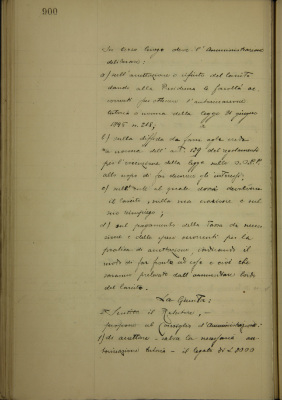 900
In terzo luogo deve l'Amministrazione
deliberare:
a) sull'accettazione o rifiuto del lascito
dando alla Presidenza le facoltà ne-
cessarie per ottenere l'autorizzazione
tutoria a norma della legge 21 giugno
1896 n. 218;
b) sulla diffida da fare
a norma dell'art. 139 del regolamento
per l'esecuzione della legge sulle I.P.B.
allo scopo di far decorrere gli interessi;
c) sull'ente al quale dovrà devolversi
il lascito, sulla sua erezione e sul
suo impiego;
d) sul pagamento della tassa di succes-
sione e delle spese occorrenti per la
pratica di accettazione, indicando il
modo di far fronte ad esse e cioè che
saranno prelevate dall'ammontare lordo
del lascito.
La Giunta:
Sentito il Relatore,
propone al Consiglio d'Amministrazione:
1) di accettare - salva la necessaria au-
torizzazione tutoria - il legato di L. 8000